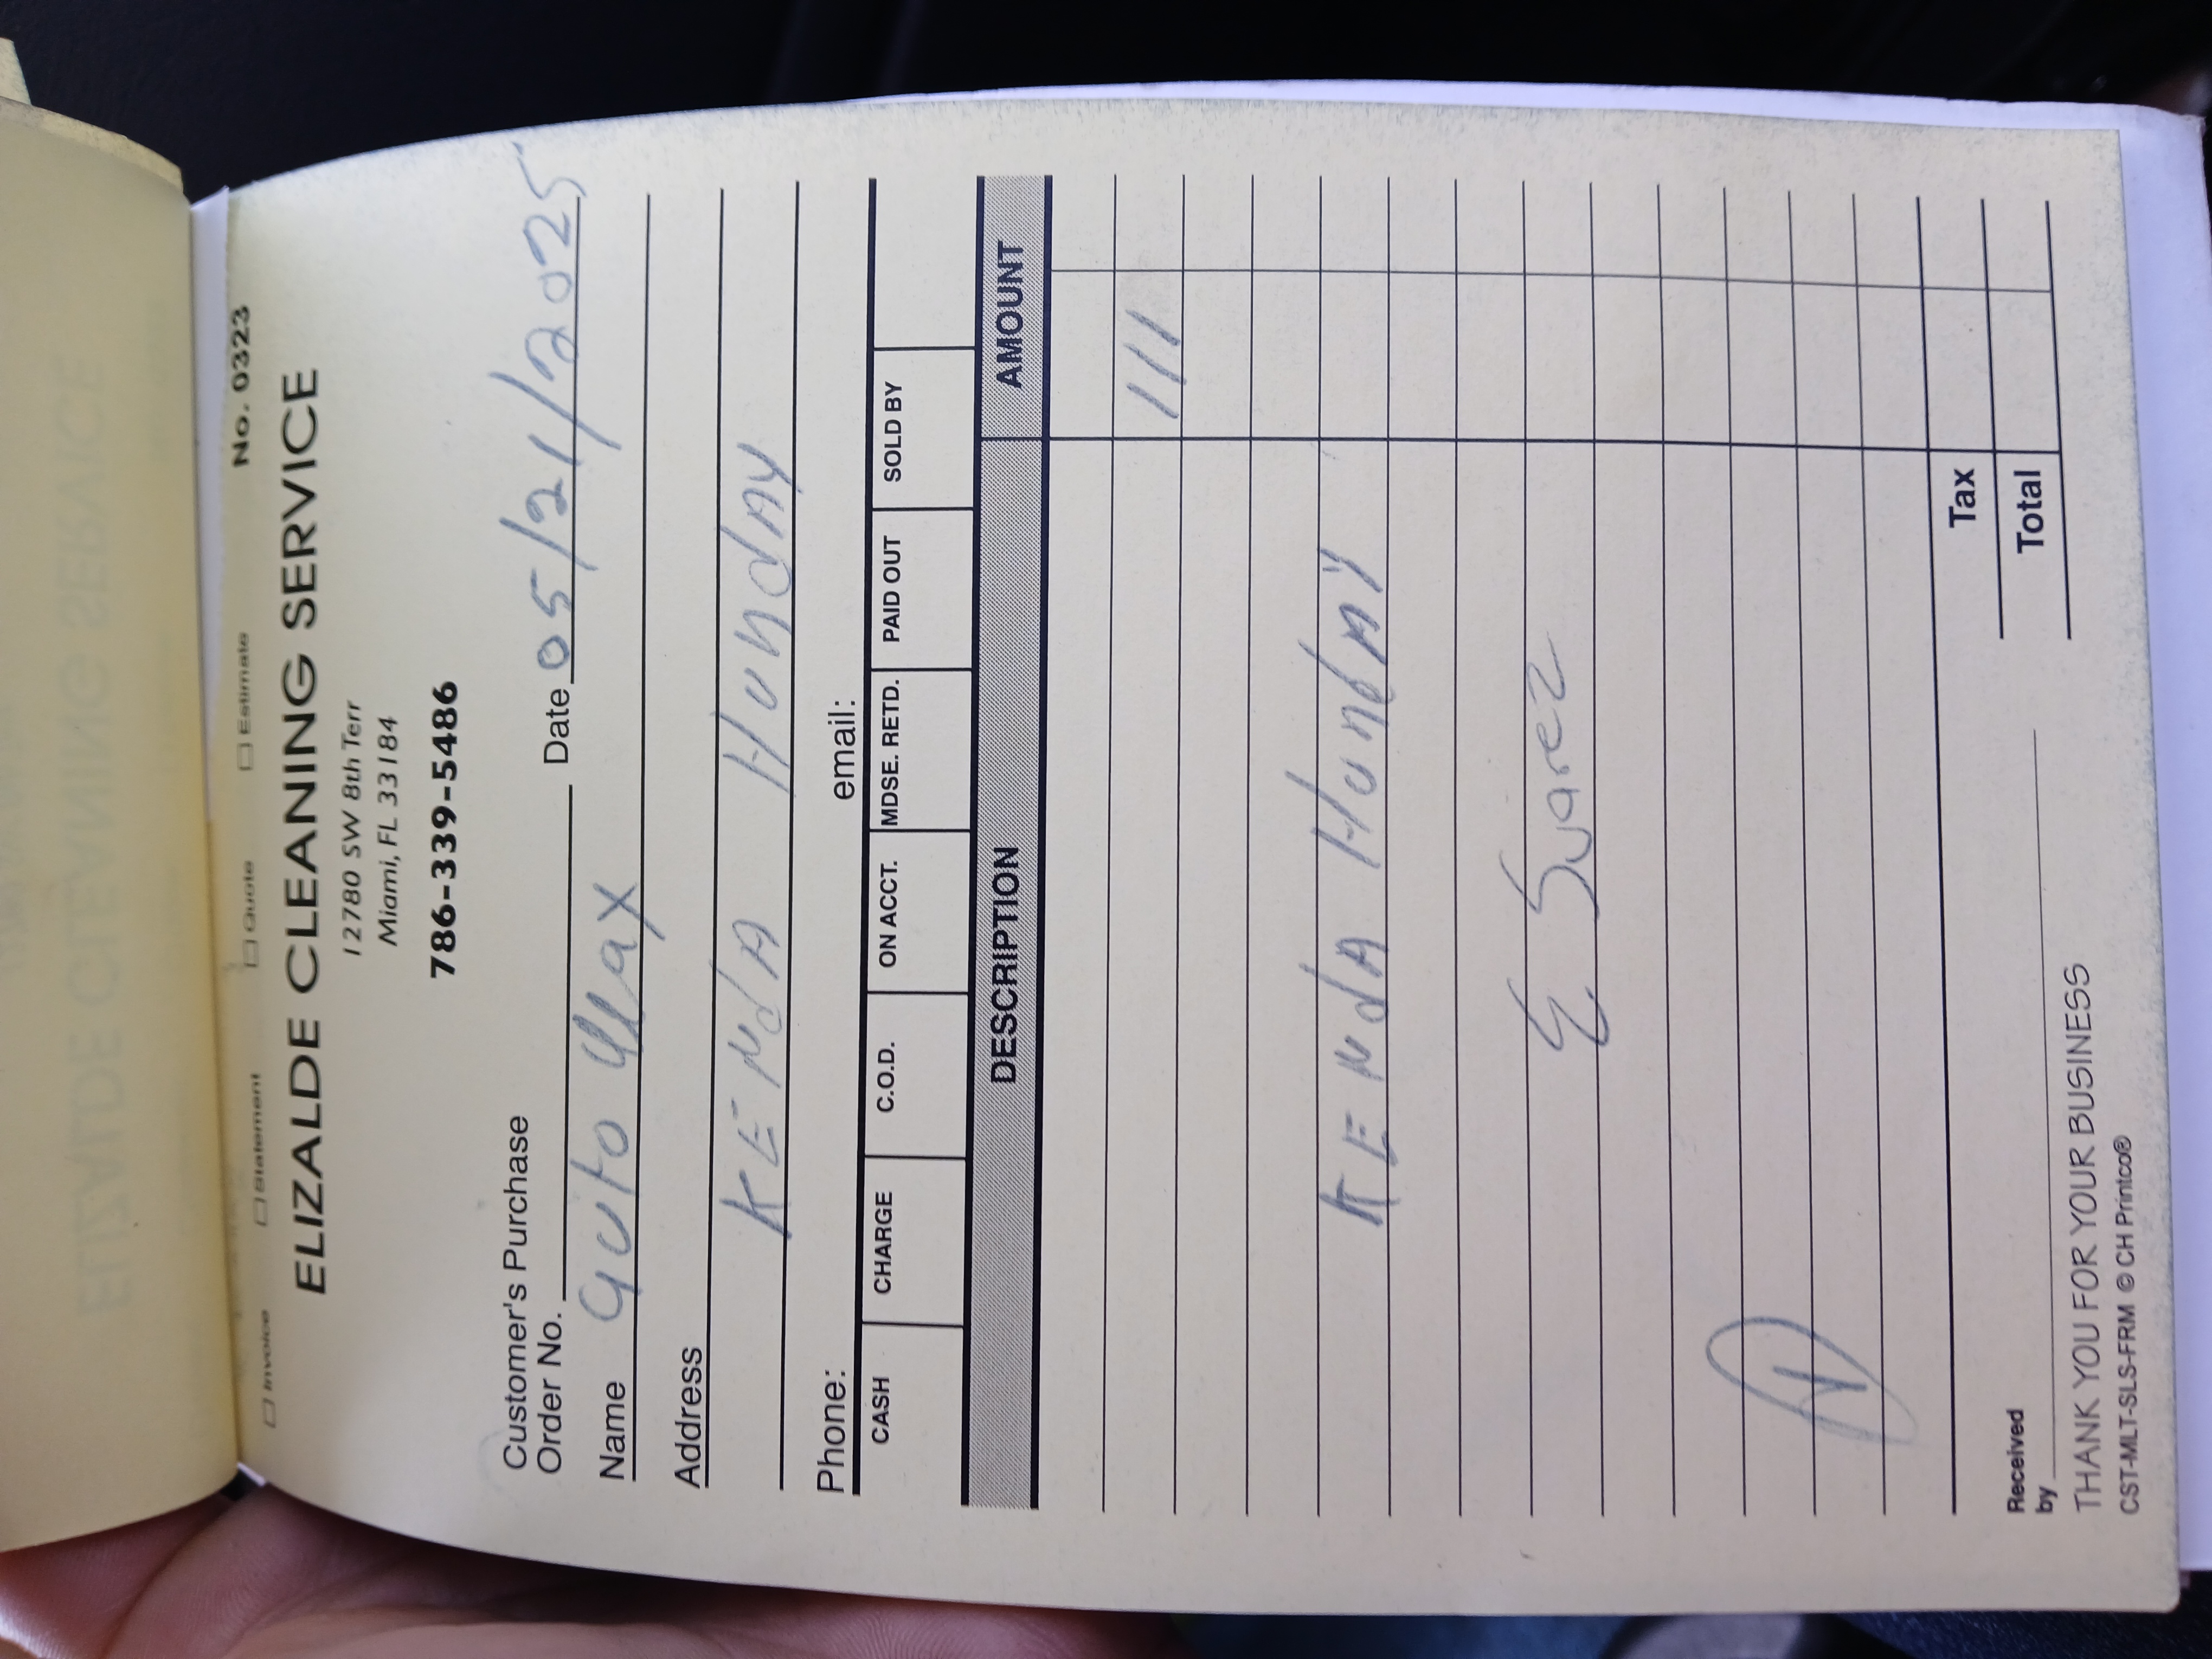 No. 0323
☐ Invoice ☐ Statement ☐ Quote ☐ Estimate
ELIZALDE CLEANING SERVICE
12780 SW 8th Terr
Miami, FL 33184
786-339-5486
Customer's Purchase
Order No. Date 05/21/2025
Name auto Max
Address
KENdA HundAy
Phone: email:
CASH CHARGE C.O.D. ON ACCT. MDSE. RETD. PAID OUT SOLD BY
DESCRIPTION AMOUNT
111
KENdA HundAy
E. Suarez
Tax
Total
Received
by
THANK YOU FOR YOUR BUSINESS
CST-MLT-SLS-FRM © CH Printco®